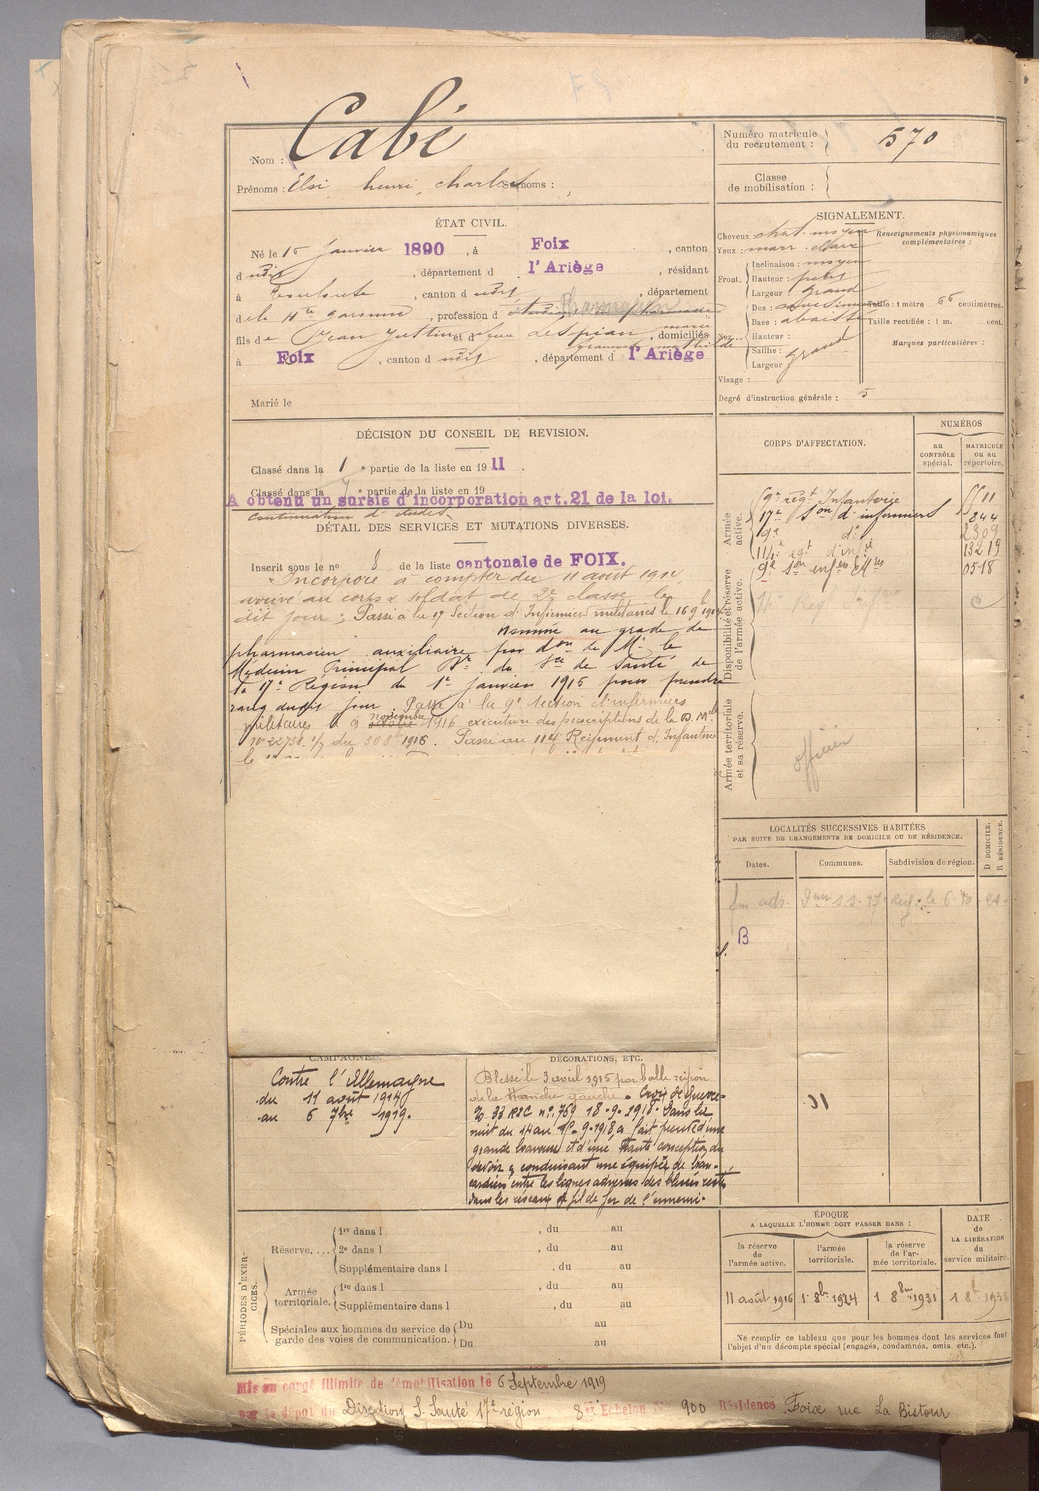 Nom : Cabé
Prénoms : Elsi henri, charles Surnoms :
Numéro matricule du recrutement : 570
Classe de mobilisation :
ÉTAT CIVIL.
Né le 15 Janvier 1890, à Foix, canton
d udit, département d l'Ariège, résidant
à Toulouse, canton d udit, département
d e la Hte garonne, profession d Pharmacien
fils de Jean Justin et d domiciliés
à Foix, canton d udit, département d l'Ariège
Marié le
SIGNALEMENT.
Cheveux chat. moyen
Yeux : marr. clair
Front. Inclinaison : moyen
Hauteur : petit
Largeur : grand
Nez. Dos :
Base : abaissé
Hauteur :
Saillie :
Largeur grand
Visage :
Degré d'instruction générale : 5
Renseignements physionomiques complémentaires :
Taille : 1 mètre 66 centimètres.
Taille rectifiée : 1 m. cent.
Marques particulières :
DÉCISION DU CONSEIL DE REVISION.
Classé dans la 1 e partie de la liste en 19 11
Classé dans la e partie de la liste en 19
A obtenu un sursis d'incorporation art. 21 de la loi.
continuation d'études
DÉTAIL DES SERVICES ET MUTATIONS DIVERSES.
Inscrit sous le no 8 de la liste cantonale de FOIX.
Incorporé à compter du 11 août 1914,
arrivé au corps & soldat de 2e classe le
dit jour ; Passé à la 17 Section d'Infirmiers militaires le 16 9
Nommé au grade de
pharmacien auxiliaire par don de Mr le
Médecin Principal Dr du Sce de Santé de
la 17e Région du 1er janvier 1915 pour prendre
rang dudit jour. Passé à la 9e Section d'infirmiers
militaires le 9 novembre 1916 exécution des prescriptions de la D. Mle
no 22758 du 30 1916. Passé au 114e Régiment d'Infanterie
le
CORPS D'AFFECTATION.
NUMÉROS
au CONTRÔLE spécial.
MATRICULE OU AU répertoire.
Armée active.
9e régt Infanterie
17e Son d'infirmiers 244
9e do 2309
114e regt d'infie 13219
9e Son infers Mres 0518
Disponibilité et réserve de l'armée active.
Armée territoriale et sa réserve.
officier
LOCALITÉS SUCCESSIVES HABITÉES
PAR SUITE DE CHANGEMENTS DE DOMICILE OU DE RÉSIDENCE.
Dates.
Communes.
Subdivision de région.
D DOMICILE.
R RÉSIDENCE.
B
CAMPAGNES.
Contre l'Allemagne
du 11 août 1914
au 6 7bre 1919.
DÉCORATIONS, ETC.
Blessé le 3 avril 1915 par balle région
de la Hanche gauche. Croix de Guerre.
33 no 769 18-9-1918. Dans la
nuit du 14 au -9-1918, a fait preuve d'une
grande bravoure et d'une haute conception du
devoir, y conduisant une équipe de bran-
cardiers entre les lignes adverses des blessés restés
dans les réseaux de fil de fer de l'ennemi.
PÉRIODES D'EXERCICES.
Réserve. ...
1re dans l , du au
2e dans l , du au
Supplémentaire dans l , du au
Armée territoriale.
1re dans l , du au
Supplémentaire dans l , du au
Spéciales aux hommes du service de garde des voies de communication.
Du au
Du au
ÉPOQUE
A LAQUELLE L'HOMME DOIT PASSER DANS :
la réserve de l'armée active.
l'armée territoriale.
la réserve de l'armée territoriale.
DATE de LA LIBÉRATION du service militaire.
11 août 1916
1 8bre 1924
1 8bre 1931
Ne remplir ce tableau que pour les hommes dont les services font
l'objet d'un décompte spécial (engagés, condamnés, omis, etc.).
Mis en congé illimité de démobilisation le 6 Septembre 1919
par le dépôt du Direction S. Santé 17e région 8e Echelon No 900 Résidence Foix rue La Bistour